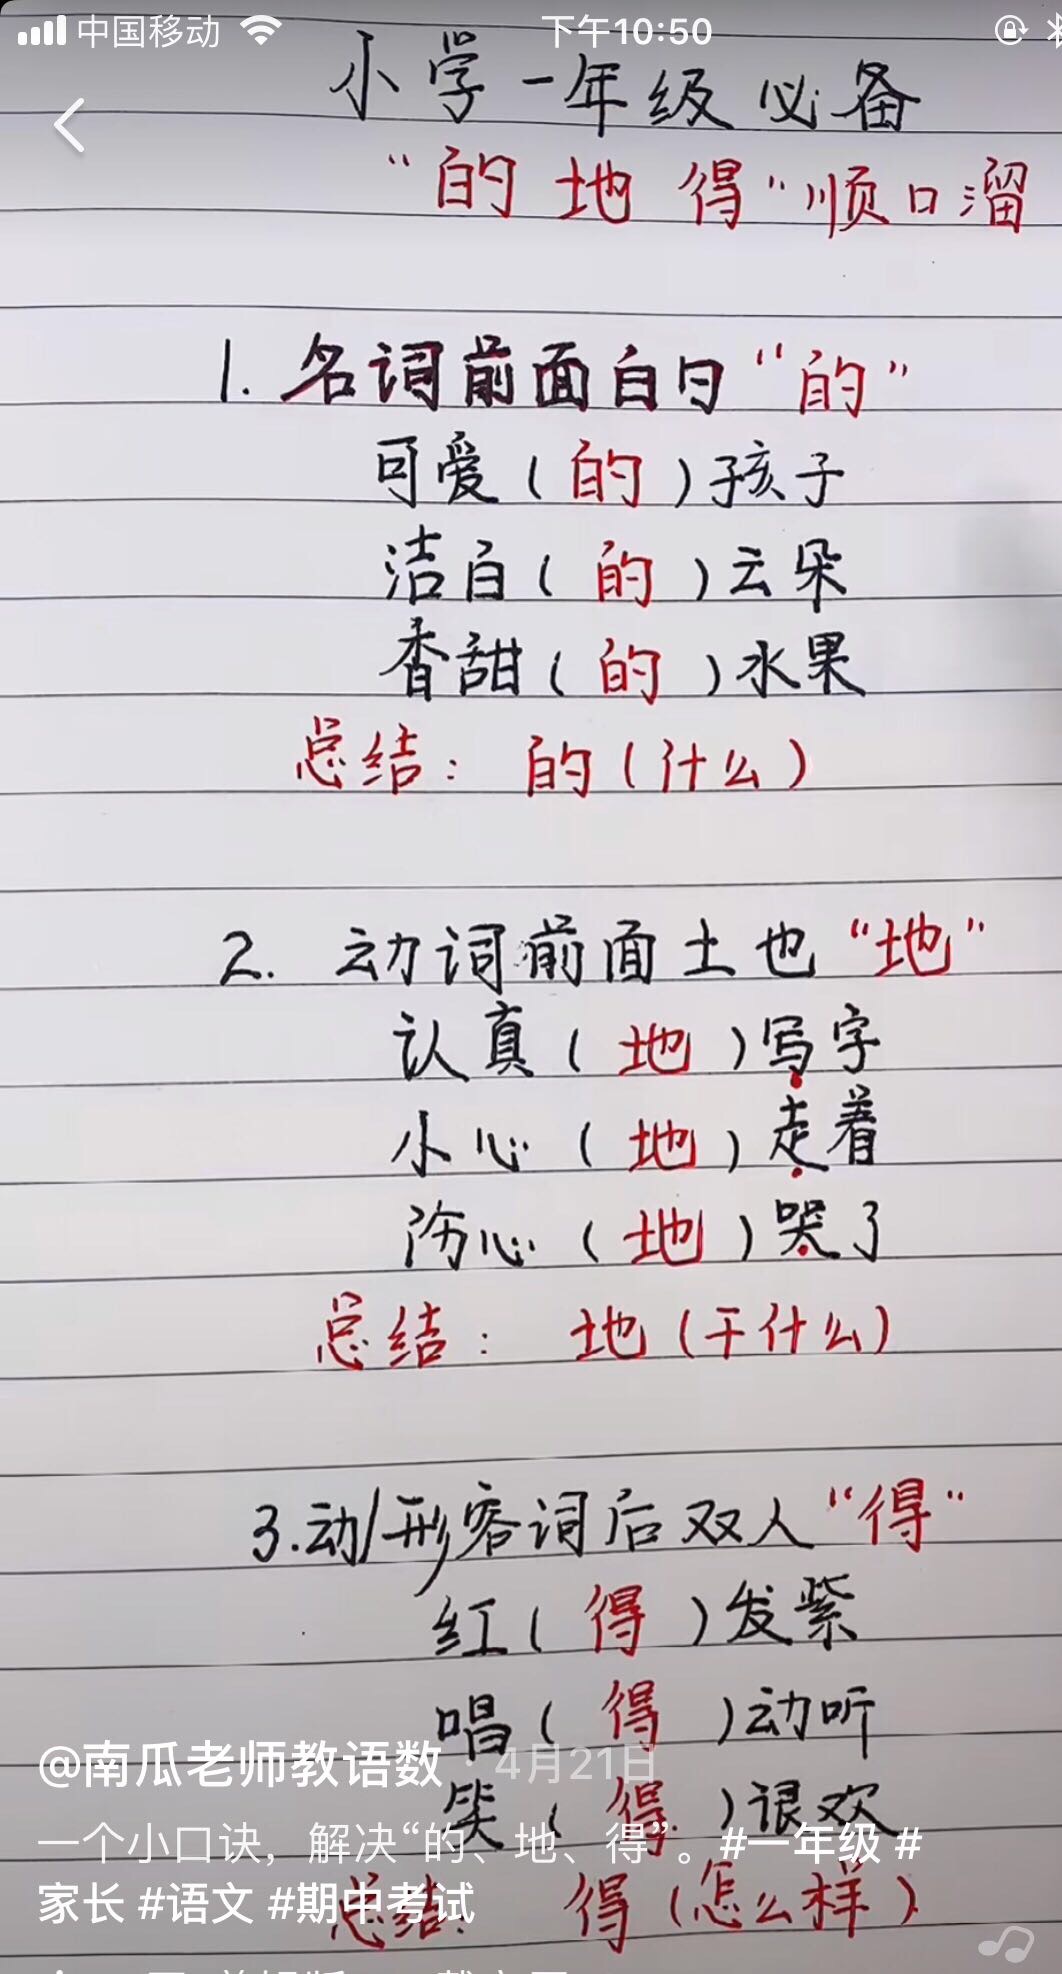 中国移动 下午10:50
小学一年级必备
“的 地 得”顺口溜
1. 名词前面白勺“的”
可爱（的）孩子
洁白（的）云朵
香甜（的）水果
总结：的（什么）
2. 动词前面土也“地”
认真（地）写字
小心（地）走着
伤心（地）哭了
总结：地（干什么）
3. 动/形容词后双人“得”
红（得）发紫
唱（得）动听
@南瓜老师教语数 · 4月21日
笑（得）很欢
一个小口诀，解决“的、地、得”。#一年级 #
家长 #语文 #期中考试
总结：得（怎么样）